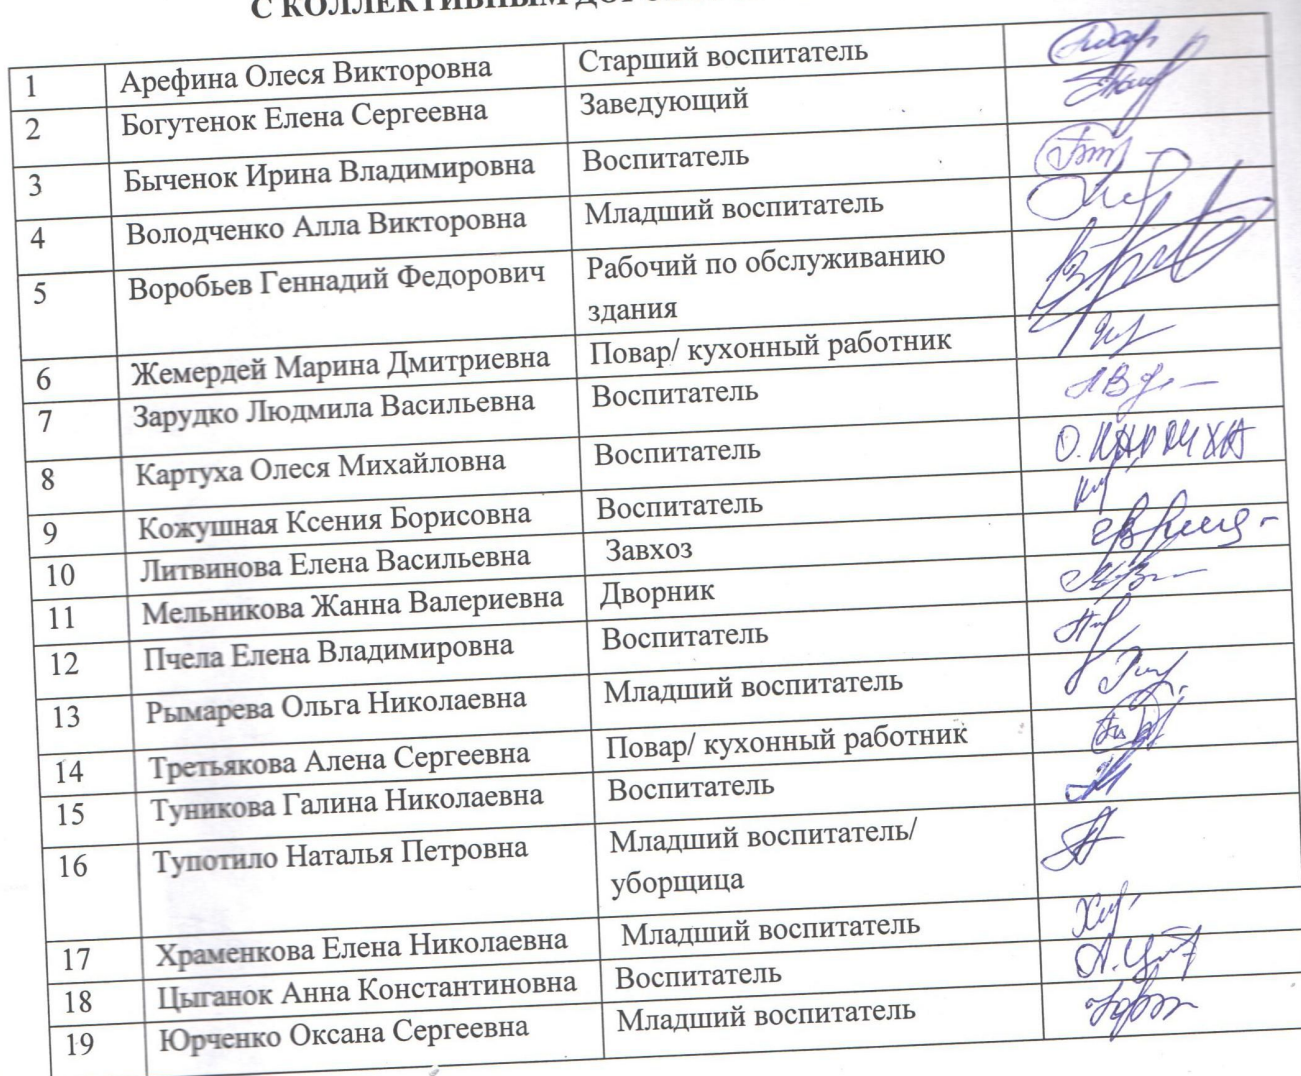 С КОЛЛЕКТИВНЫМ
1 Арефина Олеся Викторовна Старший воспитатель
2 Богутенок Елена Сергеевна Заведующий
3 Быченок Ирина Владимировна Воспитатель
4 Володченко Алла Викторовна Младший воспитатель
5 Воробьев Геннадий Федорович Рабочий по обслуживанию
здания
6 Жемердей Марина Дмитриевна Повар/ кухонный работник
7 Зарудко Людмила Васильевна Воспитатель
8 Картуха Олеся Михайловна Воспитатель
9 Кожушная Ксения Борисовна Воспитатель
10 Литвинова Елена Васильевна Завхоз
11 Мельникова Жанна Валериевна Дворник
12 Пчела Елена Владимировна Воспитатель
13 Рымарева Ольга Николаевна Младший воспитатель
14 Третьякова Алена Сергеевна Повар/ кухонный работник
15 Туникова Галина Николаевна Воспитатель
16 Тупотило Наталья Петровна Младший воспитатель/
уборщица
17 Храменкова Елена Николаевна Младший воспитатель
18 Цыганок Анна Константиновна Воспитатель
19 Юрченко Оксана Сергеевна Младший воспитатель